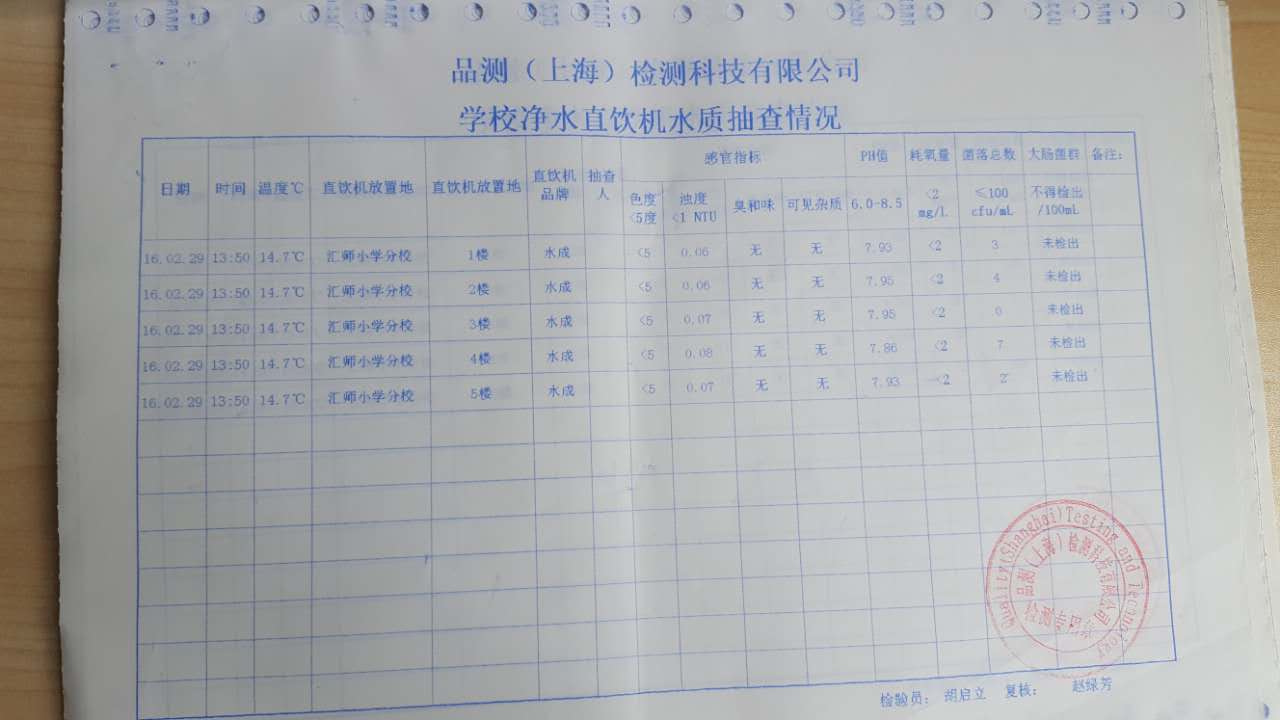 品测（上海）检测科技有限公司
学校净水直饮机水质抽查情况
日期 时间 温度℃ 直饮机放置地 直饮机放置地 直饮机品牌 抽查人 感官指标 PH值 耗氧量 菌落总数 大肠菌群 备注:
色度<5度 浊度<1 NTU 臭和味 可见杂质 6.0-8.5 <2 mg/L ≤100 cfu/mL 不得检出/100mL
16.02.29 13:50 14.7℃ 汇师小学分校 1楼 水成 <5 0.06 无 无 7.93 <2 3 未检出
16.02.29 13:50 14.7℃ 汇师小学分校 2楼 水成 <5 0.06 无 无 7.95 <2 4 未检出
16.02.29 13:50 14.7℃ 汇师小学分校 3楼 水成 <5 0.07 无 无 7.95 <2 未检出
16.02.29 13:50 14.7℃ 汇师小学分校 4楼 水成 <5 0.08 无 无 7.86 <2 7 未检出
16.02.29 13:50 14.7℃ 汇师小学分校 5楼 水成 <5 0.07 无 无 7.93 <2 2 未检出
Quality(Shanghai)Testing and Technology
品测（上海）检测科技有限公司
检测专用章
检验员： 胡启立 复核： 赵绿芳